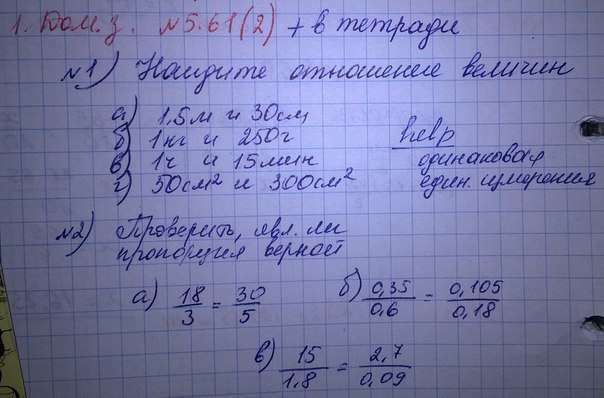 1. Дом.з. №5.61(2) + в тетради
№1) Найдите отношение величин
а) 1,5м и 30см
б) 1кг и 250г
в) 1ч и 15мин
г) 50см² и 300см²
help
одинаковая
един. измерения
№2) Проверить, явл. ли
пропорция верной
а) 18/3 = 30/5
б) 0,35/0,6 = 0,105/0,18
в) 15/1,8 = 2,7/0,09